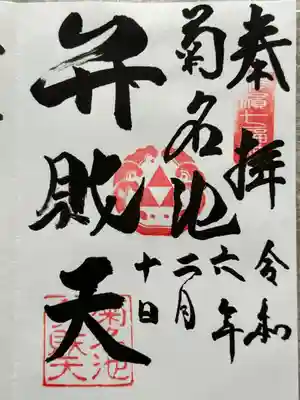 奉拝
令和
六年
二月
十日
菊名池
弁財天
菊名池
弁財天